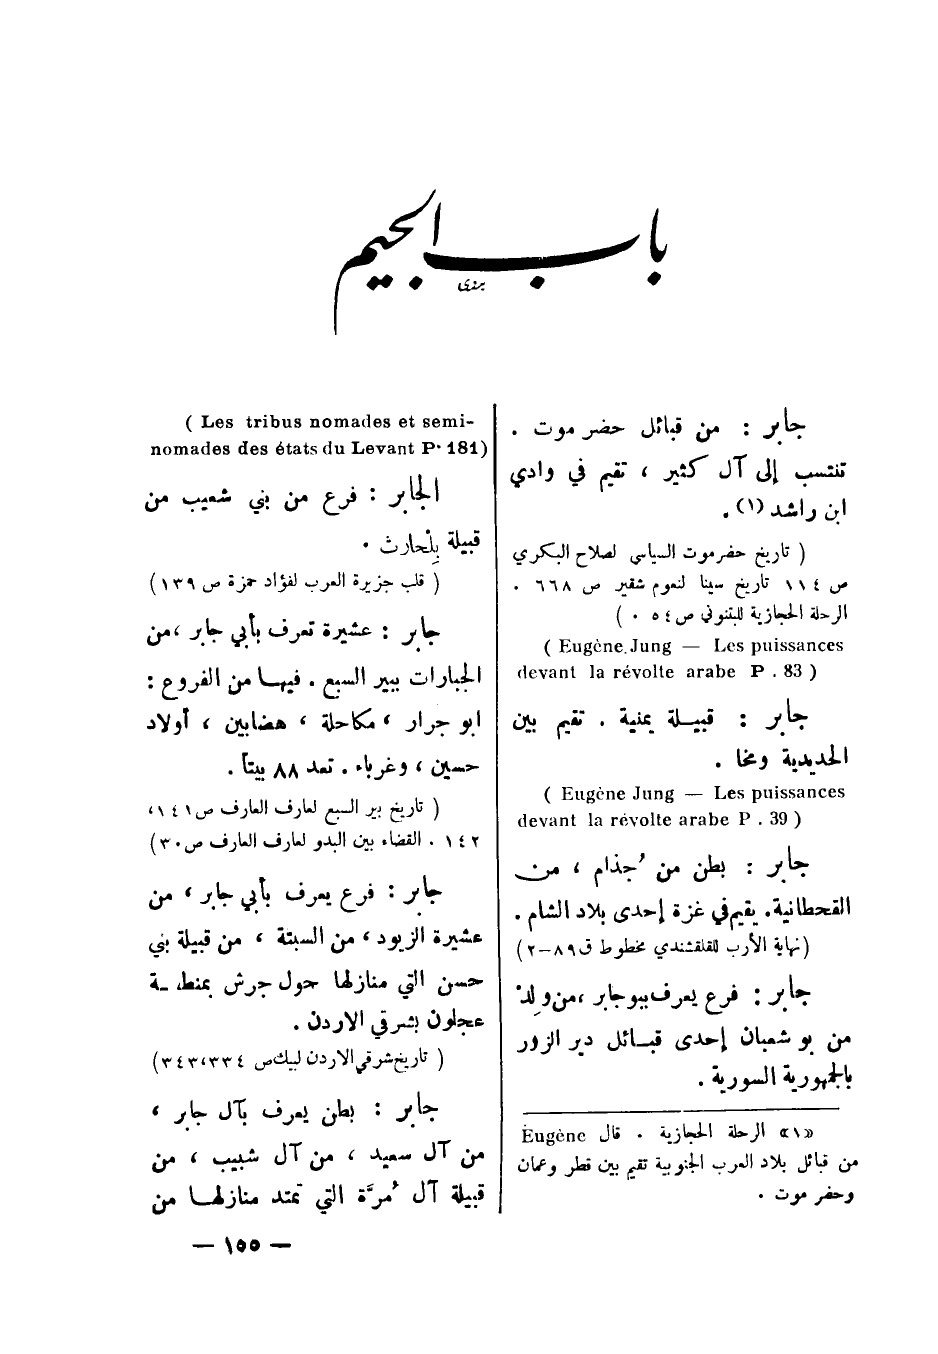 باب الجيم
جابر : من قبائل حضر موت .
تنتسب إلى آل كثير ، تقيم في وادي
ابن راشد (١) .
( تاريخ حضرموت السياسي لصلاح البكري
ص ١١٤ تاريخ سينا لنعوم شقير ص ٦٦٨ .
الرحلة الحجازية للبتنوني ص ٥٤ . )
( Eugène Jung — Les puissances
devant la révolte arabe P . 83 )
جابر : قبيلة يمنية . تقيم بين
الحديدية ومخا .
( Eugène Jung — Les puissances
devant la révolte arabe P . 39 )
جابر : بطن من ُجذام ، من
القحطانية. يقيم في غزة إحدى بلاد الشام .
(نهاية الأرب للقلقشندي مخطوط ق ٨٩–٢)
جابر : فرع يعرف ببوجابر ،من ولِدْ
من بو شعبان إحدى قبائل دير الزور
بالجمهورية السورية .
«١» الرحلة الحجازية . قال Eugène
من قبائل بلاد العرب الجنوبية تقيم بين قطر وعمان
وحضر موت .
( Les tribus nomades et semi-
nomades des états du Levant P. 181)
الجابر : فرع من بني شعيب من
قبيلة بِلْحارث .
( قلب جزيرة العرب لفؤاد حمزة ص ١٣٩ )
جابر : عشيرة تعرف بأبي جابر ،من
الجبارات ببير السبع . فيها من الفروع :
ابو جرار ، مكاحلة ، هضابين ، أولاد
حسين ، وغرباء . تعد ٨٨ بيتاً .
( تاريخ بير السبع لعارف العارف ص١٤١،
١٤٢ . القضاء بين البدو لعارف العارف ص٣٠)
جابر : فرع يعرف بأبي جابر ، من
عشيرة الزيود ، من السبتة ، من قبيلة بني
حسن التي منازلها حول جرش بمنطقة
عجلون بشرقي الاردن .
( تاريخ شرقي الاردن لبيك ص ٣٣٤،٣٤٣ )
جابر : بطن يعرف بآل جابر ،
من آل سعيد ، من آل شبيب ، من
قبيلة آل ُمرَّة التي تمتد منازلها من
— ١٥٥ —